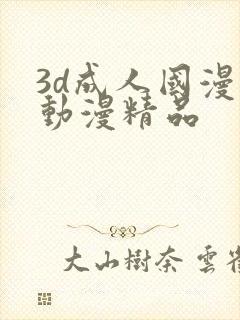 3d成人國漫
動漫精品
大山樹奈 雲雀